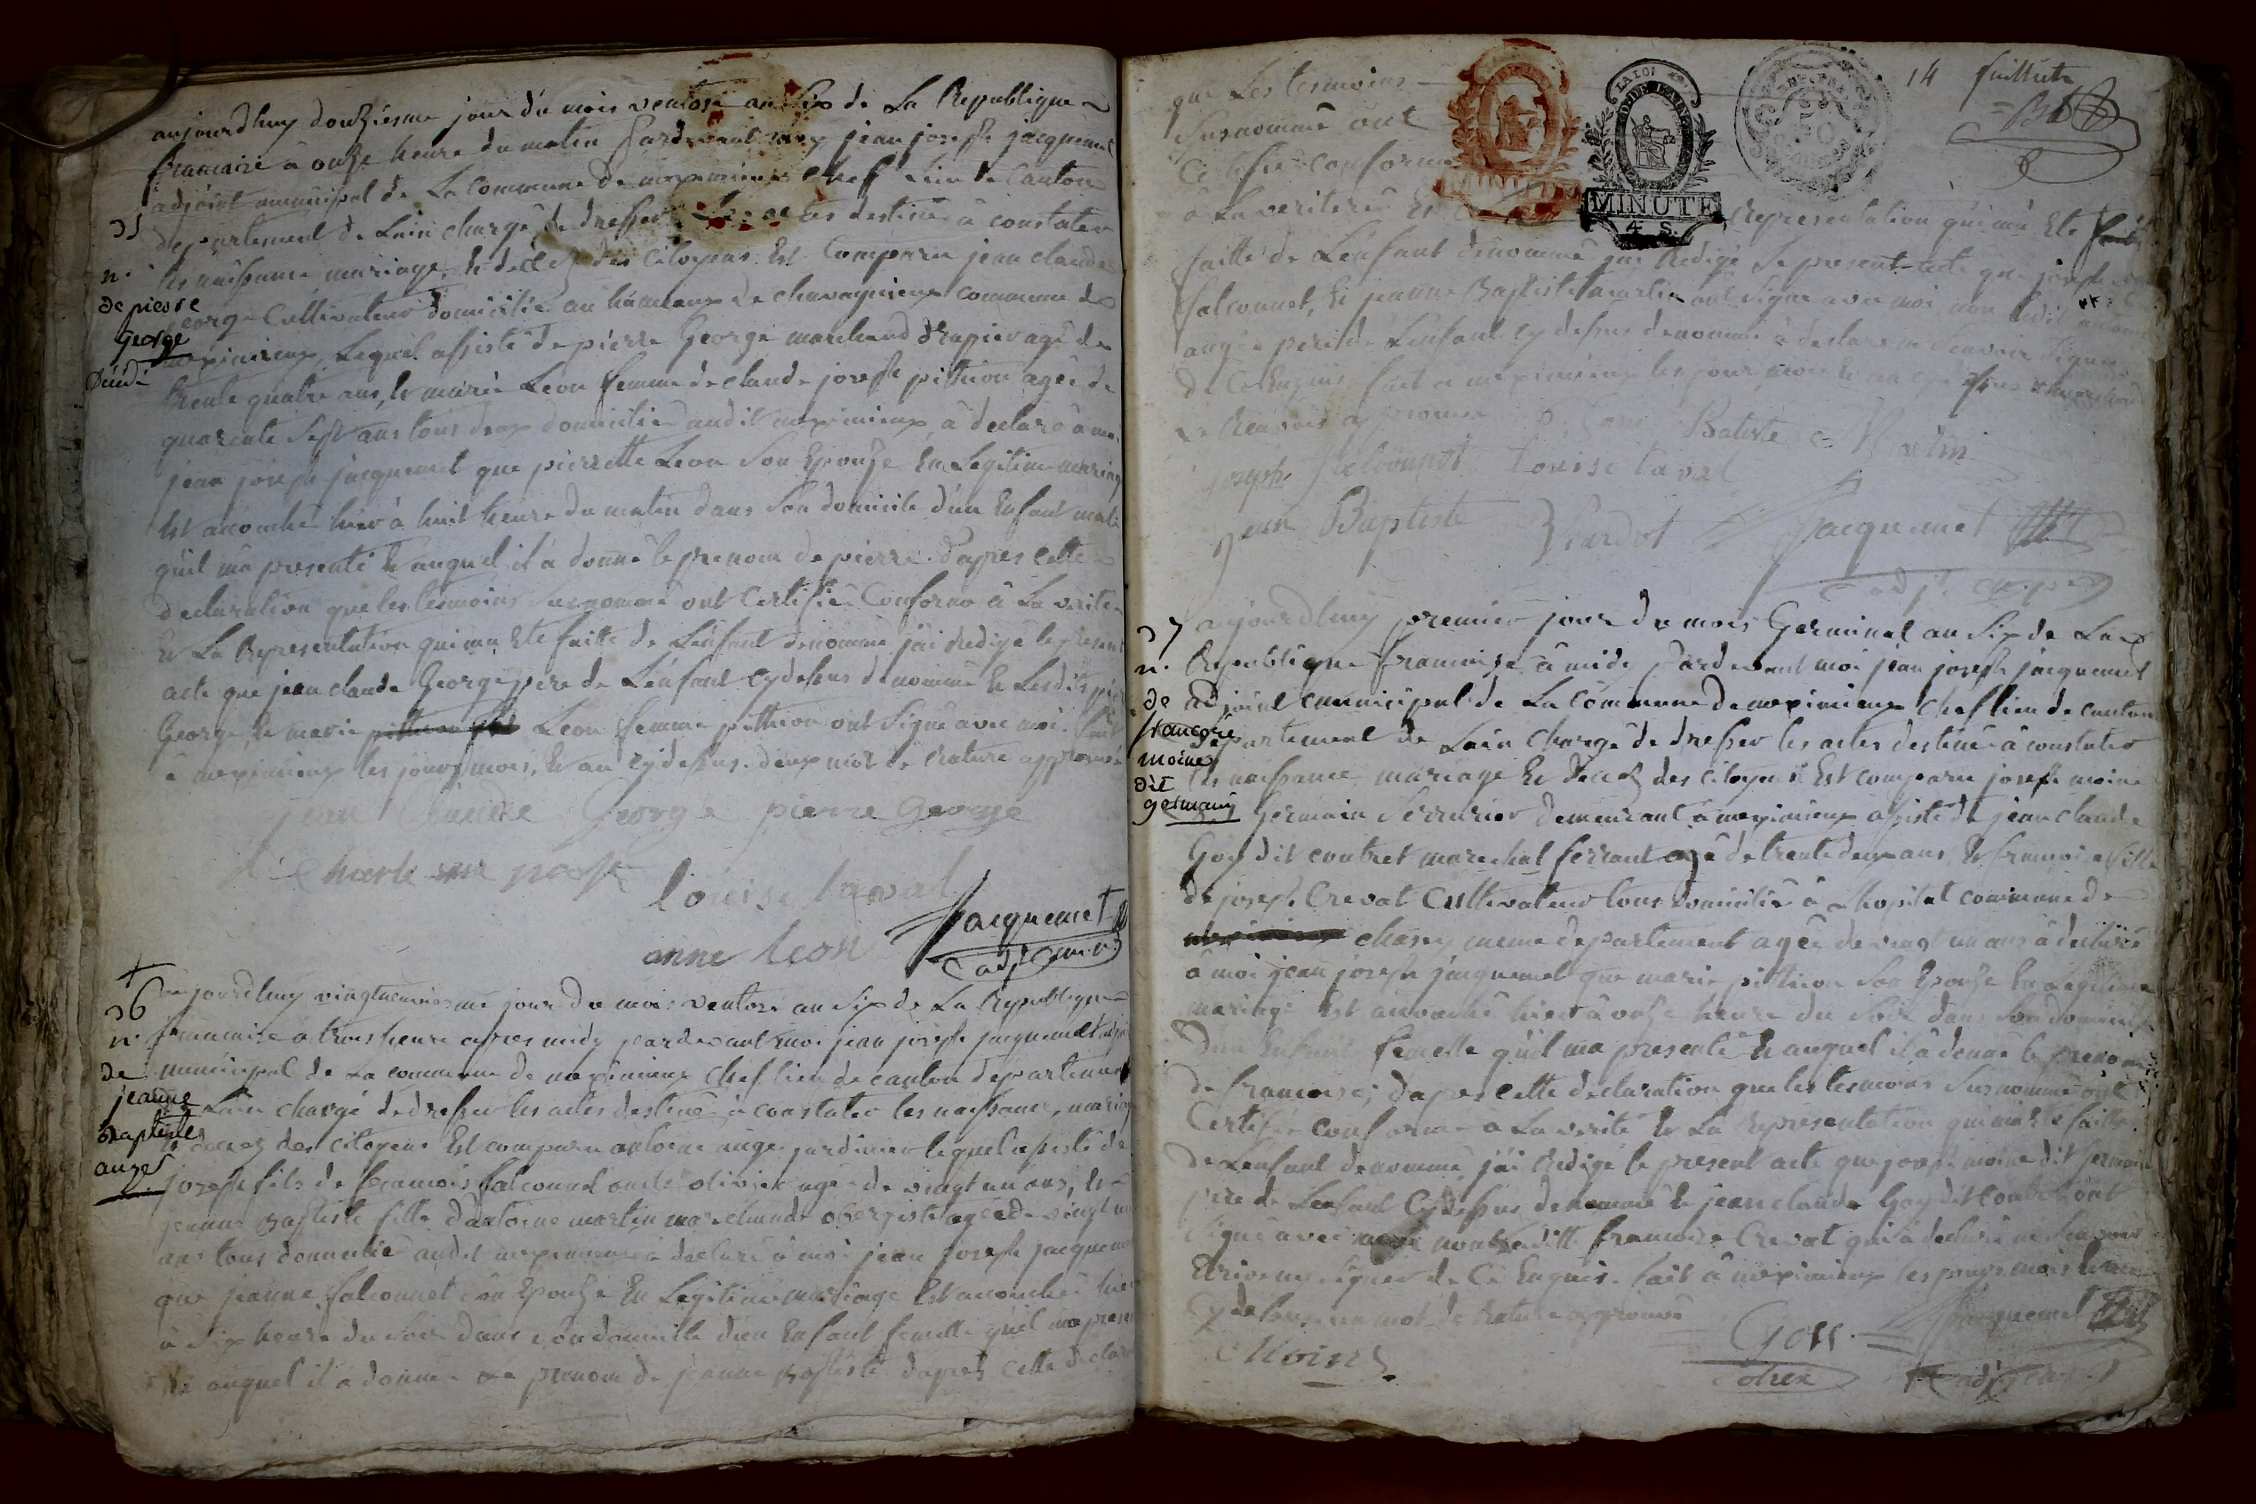 aujourdhuy douziesme jour du mois ventose an six de La Republique
francaise â onze heure du matin pardevant moy jean joseph jacquemet
adjoint municipal de La commune de meximieux chef Lieu de Canton
departement de Lain chargé de dresser les actes destinés â constater
les naissance mariage, et decez des citoyens Est Comparu jean claude
George Cultivateur domicilié au hameaux de chavagnieux commune de
meximieux, Lequel assisté de pierre George marchand drapier agé de
trente quatre ans, et marie Leon femme de claude joseph pittion agée de
quarente sept ans tous deux domicilié audit meximieux, â declaré â moi
jean joseph jacquemet que pierrette Leon Son Epouze En Legitime mariage
Est accouchée hier â huit heure du matin dans Son domicile d'un Enfant male
quil ma presenté Et auquel il â donné le prenom de pierre. d'apres cette
declaration que les tesmoins susnommé ont Certifié Conforme â La verité
Et La Representation qui ma Eté faitte de Lenfant denommé jai Redigé le present
acte que jean claude George pere de Lénfant cydessus denommé Et Lesdits pierre
George, Et marie Leon femme pittion ont Signé avec moi. fait
â meximieux les jours, mois, Et an cydessus. deux mot de Rature approuvé
jean Claude George pierre George
louise laval
anne leon Jacquemet
adj mun
25
n.
de pierre
George
26
n.
de
jeanne
Baptiste
auger
aujourdhuy vingtneuviesme jour du mois ventose an Six de La Republique
francaise â trois heure apres midy pardevant moi jean joseph jacquemet adjoint
municipal de La commune de meximieux chef lieu de canton departement
de Lain chargé de dresser les actes destiné â constater les naissance, mariage
Et decez des citoyens Est comparu antoine auger jardinier lequel assisté de
joseph fils de francois falconnet agé de vingt un ans, Et
jeanne Baptiste fille d'antoine martin marchande agée de vingt un
ans tous domicilié audit meximieux â declaré â moi jean joseph jacquemet
que jeanne falconnet Son Epouze En Legitime mariage Est accouchée hier
â Six heure du Soir dans Son domicille d'un Enfant femelle quil ma presenté
Et auquel il â donné le prenom de jeanne Baptiste dapres cette declaration
14
que Les tesmoins
Susnommé ont
Certifié conforme
â La verité Et Representation qui ma Eté
faitte de Lenfant denommé jai Redigé Le present acte que joseph
falconnet, Et jeanne Baptiste martin ont Signé avec moi, non ledit antoine
auger pere de Lenfant cy dessus denommé â declaré ne Scavoir Signer
de Ce Enquis fait a meximieux les jour, mois Et an
Renvois approuvé
LA LOI
MINUTE
4 S.
joseph falconnet louise laval jeane Batiste Martin
jean Baptiste Jacquemet
27
n.
de
francoise
moine
dit
germain
aujourdhuy premier jour du mois Germinal an Six de La
Republique francaise, â midi pardevant moi jean joseph jacquemet
adjoint municipal de La Commune de meximieux chef lieu de canton
departement de Lain chargé de dresser les actes destiné â constater
les naissance mariage Et decez des citoyens Est comparu joseph moine
dit Germain Serrurier demeurant â meximieux assisté de jean claude
Goy dit contret marechal ferrant agé de trente deux ans, Et francoise fille
de joseph Crevat Cultivateur tous domicilié â Lhopital commune de
chasey meme departement agée de vingt un ans â declaré
â moi jean joseph jacquemet que marie pittion Son Epouze En Legitime
mariage Est accouchée hier â onze heure du Soir dans Son domicile
D'un Enfant femelle quil ma presenté Et auquel il â donné le prenom
de francoise; dapres cette declaration que les tesmoins Susnommé ont
Certifié conforme â La verité Et La Representation qui ma Eté faitte
de Lenfant denommé, j'ai Redigé le present acte que joseph moine dit Germain
pere de Lenfant Cy dessus denommé Et jean claude Goy dit Contret ont
Signé avec moi non laditte francoise Crevat qui â declaré ne Scavoir
Ecrire ny Signer de Ce Enquis. fait â meximieux les jour, mois Et an
Cy dessus un mot de Rature approuvé
Moine Goy Jacquemet